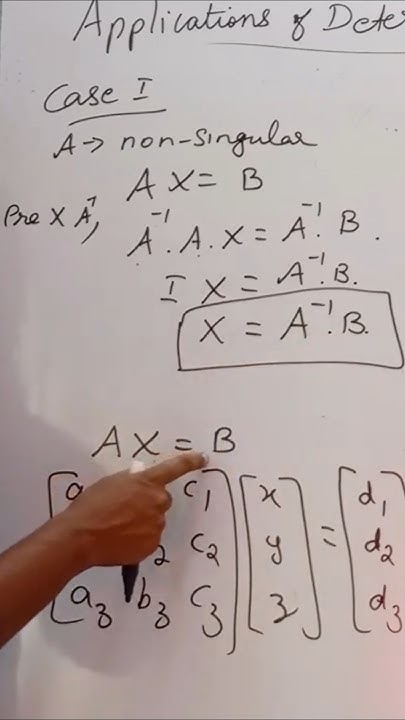 Applications of Deter
Case I
A → non-singular
A X = B
Pre X A⁻¹,
A⁻¹. A. X = A⁻¹. B.
I X = A⁻¹. B.
X = A⁻¹. B.
A X = B
[a c₁] [x] = [d₁]
[₂ c₂] [y] [d₂]
[a₃ b₃ c₃] [z] [d₃]